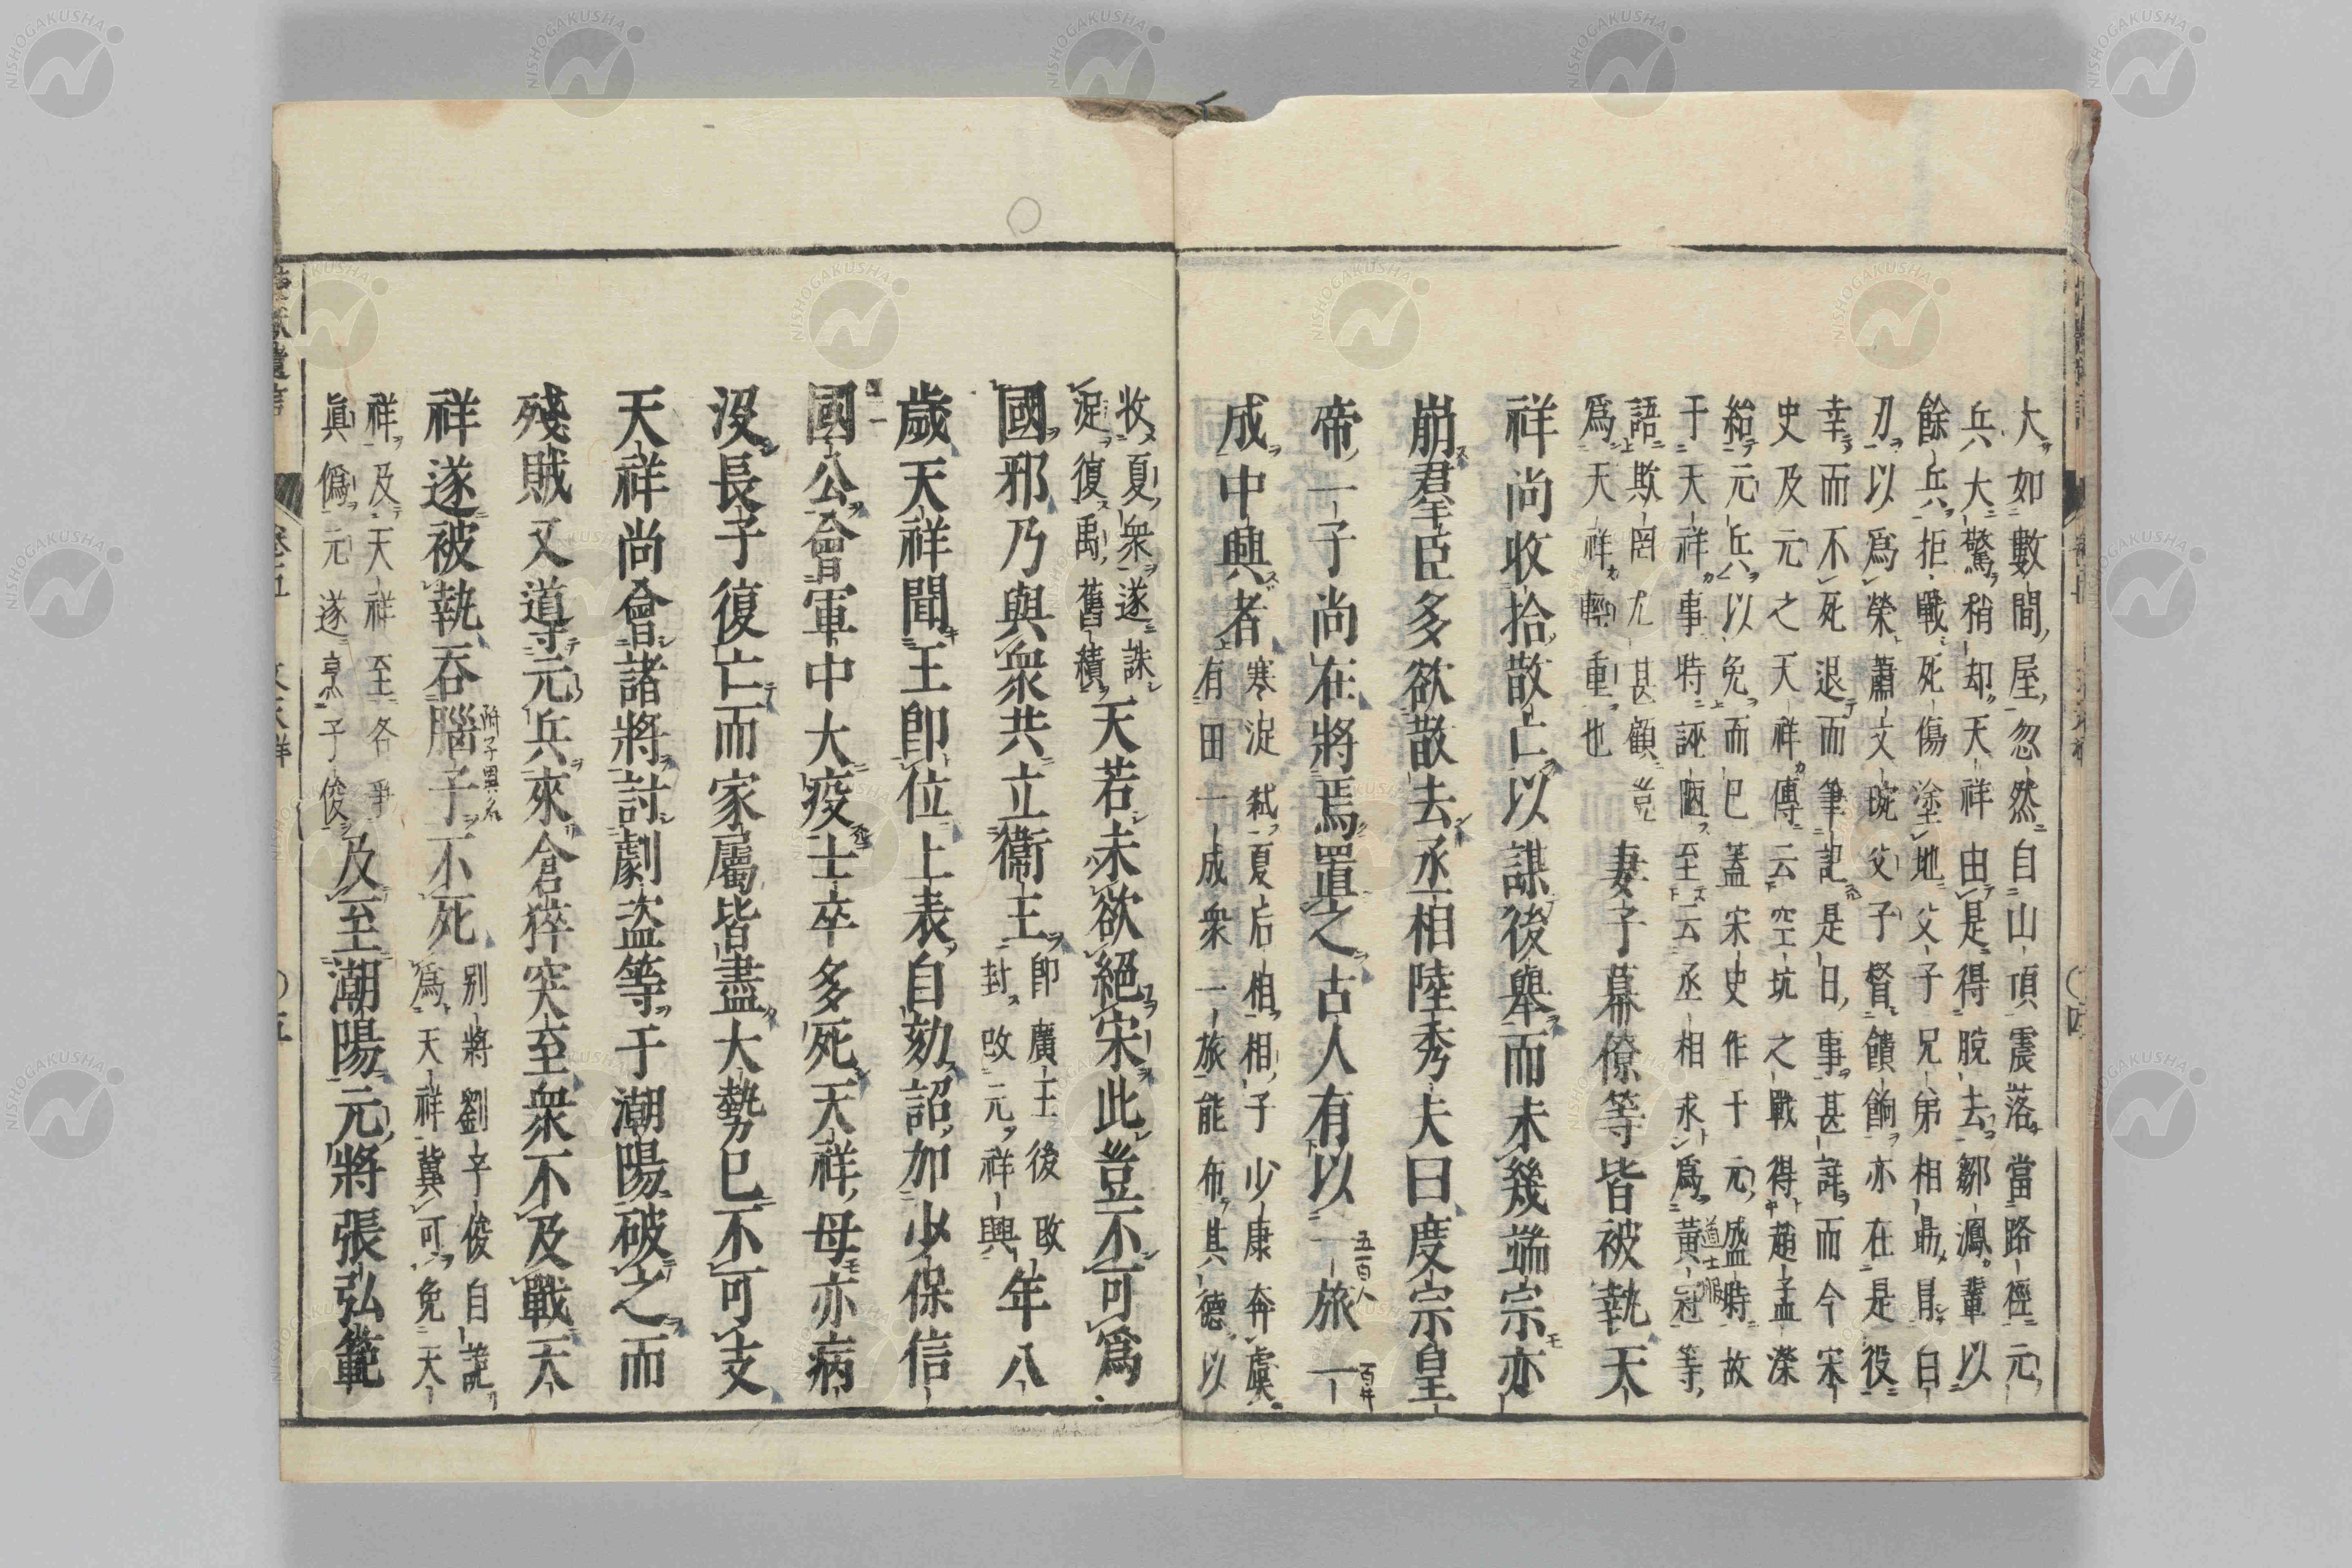 大如數間屋忽然自山頂震落當路徑元
兵大驚稍却天祥由是得脫去鄒㵯輩以
餘兵拒戰死傷塗地父子兄弟相助冒白
刃以爲榮蕭文琬父子督饋餉亦在是役
幸而不死退而筆記是日事甚詳而今宋
史及元之天祥傳云空坑之戰得趙孟濚
給元兵以免而已蓋宋史作于元盛時故
于天祥事特誣陋至云丞相求爲黃冠等
道士服
語欺罔尤甚顧豈
爲天祥輕重也
妻子幕僚等皆被執天
祥尚收拾散亡以謀後舉而未幾端宗亦
崩羣臣多欲散去丞相陸秀夫曰度宗皇
帝一子尚在將焉置之古人有以一旅一
五百人
百井
成中興者
寒浞弑夏后相相子少康奔虞
有田一成衆一旅能布其德以
收夏衆遂誅
浞復禹舊績
天若未欲絕宋此豈不可爲
國邪乃與衆共立衞王
卽廣王後改
封改元祥興
年八
歲天祥聞王卽位上表自劾詔加少保信
國公會軍中大疫士卒多死天祥母亦病
沒長子復亡而家屬皆盡大勢已不可支
天祥尚會諸將討劇盜等于潮陽破之而
殘賊又道導元兵來倉猝突至衆不及戰天
祥遂被執吞腦子不死
附子異名
別將劉子俊自詭
爲天祥冀可免天
祥及天祥至各爭
眞僞元遂烹子俊
及至潮陽元將張弘範